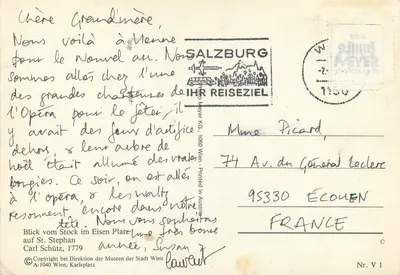 Chère Grand'mère,
Nous voilà à Vienne
pour le Nouvel an. Nous
sommes allés chez l'une
des grandes chanteuses de
l'Opéra pour le fêter, il
y avait des feux d'artifice
dehors, & leur arbre de
noël était allumé des vraies
bougies. Ce soir, on est allés
à l'opéra, & les waltz
resonnent encore dans notre
tête. Nous vous souhaitons
une très bonne
année, Susan &
Laurent
Blick vom Stock im Eisen Platz
auf St. Stephan
Carl Schütz, 1779
Copyright bei Direktion der Museen der Stadt Wien
A-1040 Wien, Karlsplatz
KG, 1060 Wien Printed in Austria
SALZBURG
IHR REISEZIEL
W
Mme Picard,
74 Av. du Général Leclerc
95330 ECOUEN
FRANCE
Nr. V 1